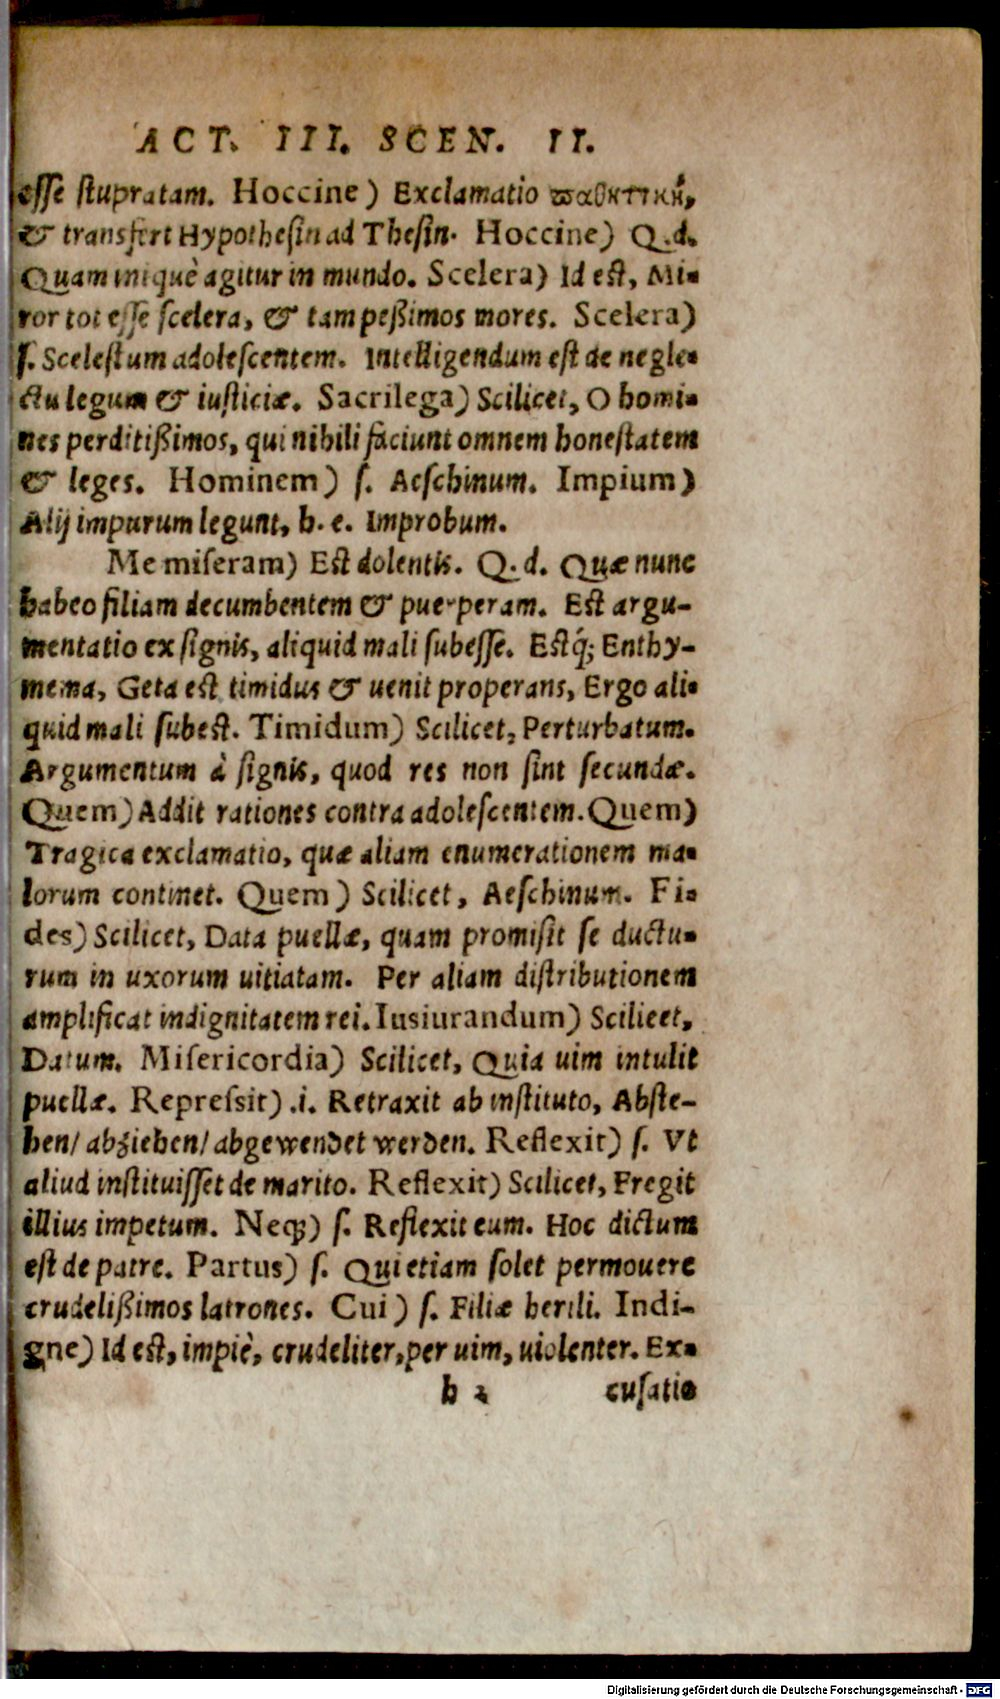 ACT. III. SCEN. II.
esse stupratam. Hoccine) Exclamatio ϖαθητικὴ,
& transfert Hypothesin ad Thesin. Hoccine) Q.d.
Quam iniquè agitur in mundo. Scelera) Id est, Mi-
ror tot esse scelera, & tam peßimos mores. Scelera)
s. Scelestum adolescentem. Intelligendum est de negle-
ctu legum & iusticiæ. Sacrilega) Scilicet, O homi-
nes perditißimos, qui nihili faciunt omnem honestatem
& leges. Hominem) s. Aeschinum. Impium)
Alij impurum legunt, h. e. Improbum.
Me miseram) Est dolentis. Q. d. Quæ nunc
habeo filiam decumbentem & puerperam. Est argu-
mentatio ex signis, aliquid mali subesse. Estq́; Enthy-
mema, Geta est timidus & uenit properans, Ergo ali-
quid mali subest. Timidum) Scilicet, Perturbatum.
Argumentum à signis, quod res non sint secundæ.
Quem) Addit rationes contra adolescentem. Quem)
Tragica exclamatio, quæ aliam enumerationem ma-
lorum continet. Quem) Scilicet, Aeschinum. Fi-
des) Scilicet, Data puellæ, quam promisit se ductu-
rum in uxorum uitiatam. Per aliam distributionem
amplificat indignitatem rei. Iusiurandum) Scilicet,
Datum. Misericordia) Scilicet, Quia uim intulit
puellæ. Repressit) .i. Retraxit ab instituto, Abste-
hen/ abziehen/ abgewendet werden. Reflexit) s. Vt
aliud instituisset de marito. Reflexit) Scilicet, Fregit
illius impetum. Neq;) s. Reflexit eum. Hoc dictum
est de patre. Partus) s. Qui etiam solet permouere
crudelißimos latrones. Cui) s. Filiæ herili. Indi-
gne) Id est, impiè, crudeliter, per uim, uiolenter. Ex-
h 2 cusatio
Digitalisierung gefördert durch die Deutsche Forschungsgemeinschaft - DFG